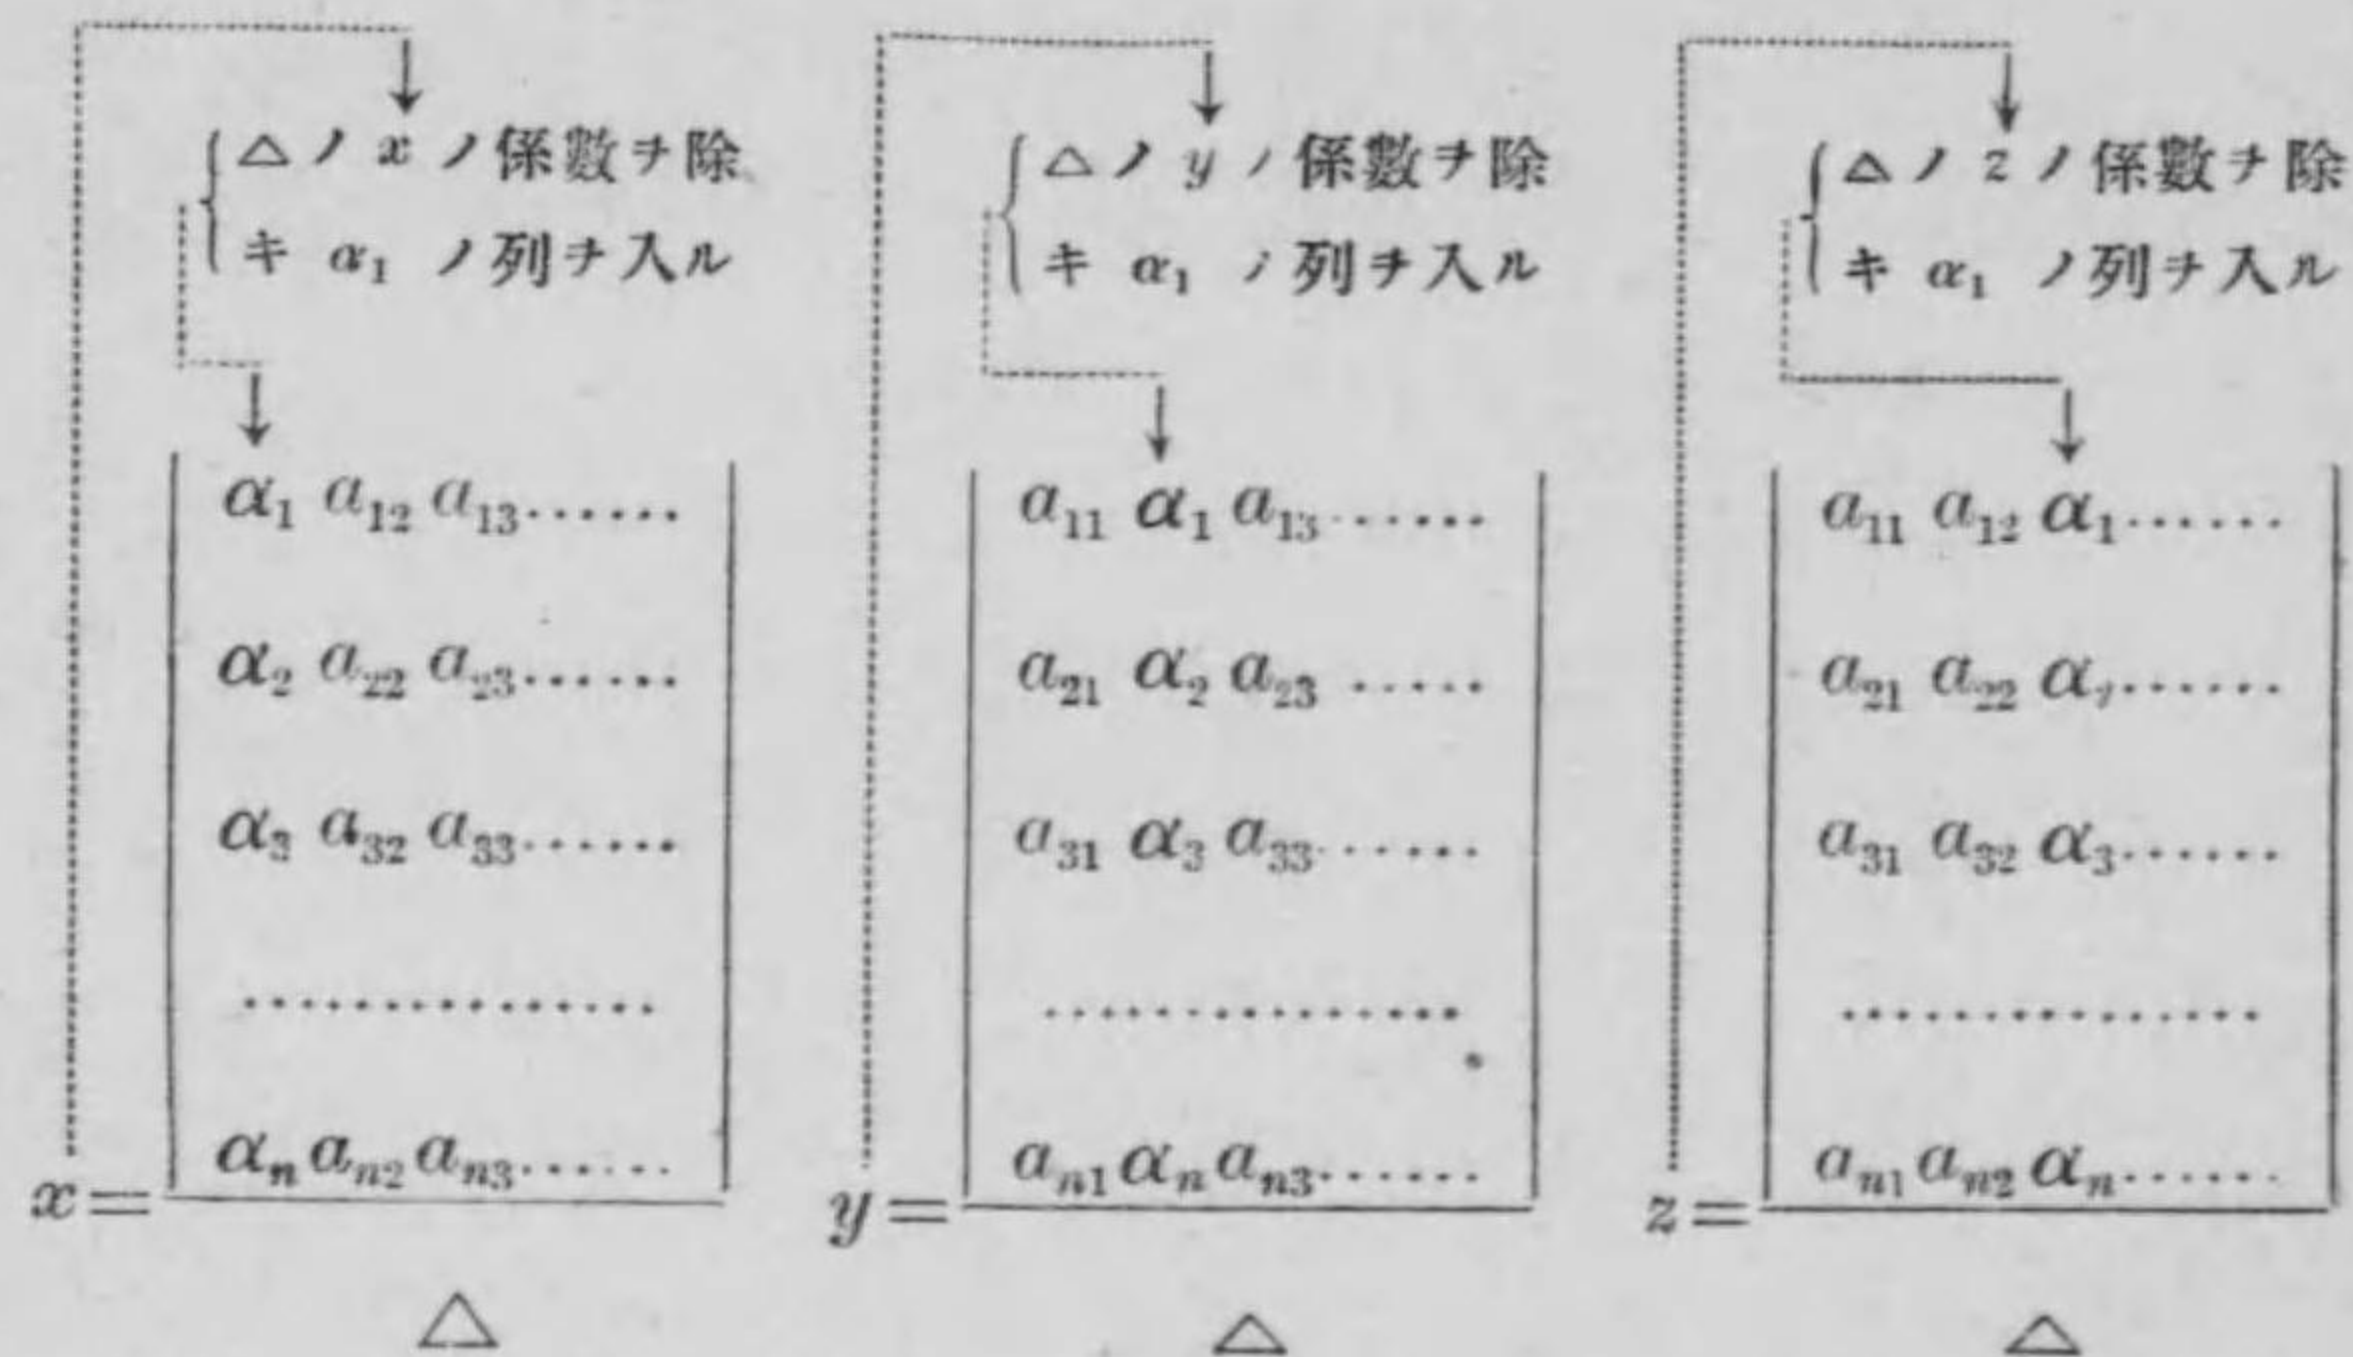 △ノ x ノ係數ヲ除
キ α₁ ノ列ヲ入ル
α₁ a₁₂ a₁₃......
α₂ a₂₂ a₂₃......
α₃ a₃₂ a₃₃......
...............
αₙ aₙ₂ aₙ₃......
x=
△
△ノ y ノ係數ヲ除
キ α₁ ノ列ヲ入ル
a₁₁ α₁ a₁₃......
a₂₁ α₂ a₂₃ .....
a₃₁ α₃ a₃₃......
...............
aₙ₁ αₙ aₙ₃......
y=
△
△ノ z ノ係數ヲ除
キ α₁ ノ列ヲ入ル
a₁₁ a₁₂ α₁......
a₂₁ a₂₂ α......
a₃₁ a₃₂ α₃......
...............
aₙ₁ aₙ₂ αₙ......
z=
△